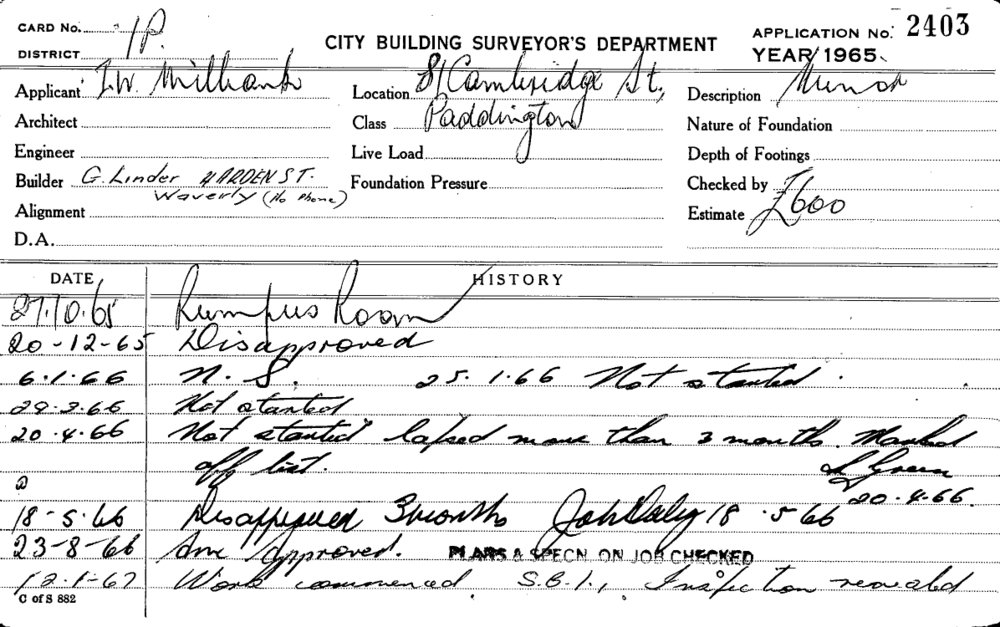 CARD No. 1P.
DISTRICT
CITY BUILDING SURVEYOR'S DEPARTMENT
APPLICATION No. 2403
YEAR 1965.
Applicant I.W. Millbank
Location 81 Cambridge St,
Description Minor
Architect
Class Paddington
Nature of Foundation
Engineer
Live Load
Depth of Footings
Builder G. Linder HARDEN ST.
Waverly (No Phone)
Foundation Pressure
Checked by
Alignment
Estimate £600
D.A.
DATE HISTORY
27.10.65 Rumpus Room
20-12-65 Disapproved
6.1.66 N. S. 25.1.66 Not started.
29.3.66 Not started
20.4.66 Not started lapsed more than 3 months. Marked
off list. Green
20.4.66.
18-5-66 3 months John Daly 18.5.66
23-8-66 approved. PLANS & SPECN. ON JOB CHECKED
12.1-67 Work commenced. S.B.I., Inspection revealed
C of S 882